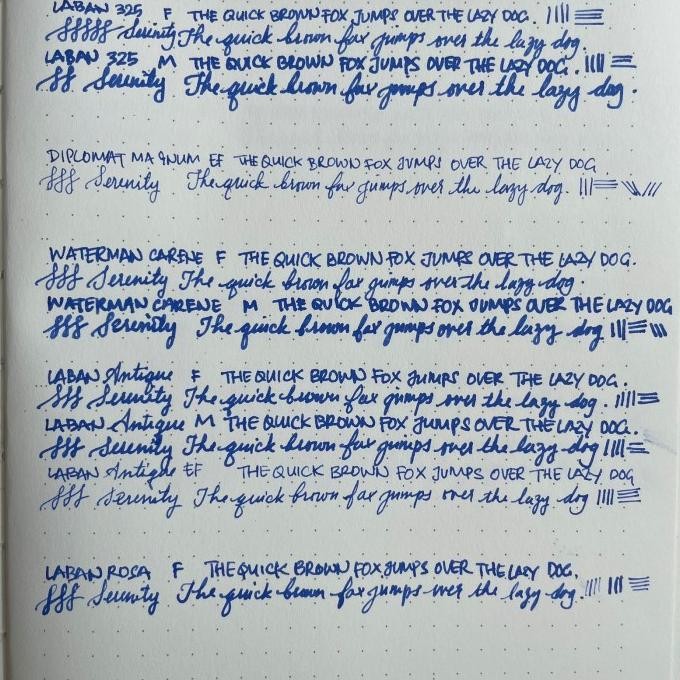 LABAN 325 F THE QUICK BROWN FOX JUMPS OVER THE LAZY DOG.
Serenity The quick brown fox jumps over the lazy dog.
LABAN 325 M THE QUICK BROWN FOX JUMPS OVER THE LAZY DOG.
Serenity The quick brown fox jumps over the lazy dog.
DIPLOMAT MAGNUM EF THE QUICK BROWN FOX JUMPS OVER THE LAZY DOG
Serenity The quick brown fox jumps over the lazy dog.
WATERMAN CARENE F THE QUICK BROWN FOX JUMPS OVER THE LAZY DOG.
Serenity The quick brown fox jumps over the lazy dog.
WATERMAN CARENE M THE QUICK BROWN FOX JUMPS OVER THE LAZY DOG
Serenity The quick brown fox jumps over the lazy dog
LABAN Antique F THE QUICK BROWN FOX JUMPS OVER THE LAZY DOG.
Serenity The quick brown fox jumps over the lazy dog.
LABAN Antique M THE QUICK BROWN FOX JUMPS OVER THE LAZY DOG.
Serenity The quick brown fox jumps over the lazy dog
LABAN Antique EF THE QUICK BROWN FOX JUMPS OVER THE LAZY DOG
Serenity The quick brown fox jumps over the lazy dog
LABAN ROSA F THE QUICK BROWN FOX JUMPS OVER THE LAZY DOG.
Serenity The quick brown fox jumps over the lazy dog.